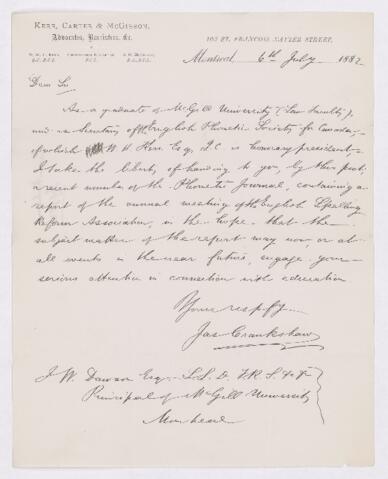 KERR, CARTER & MCGIBBON,
Advocates, Barristers, &c.
103 ST. FRANCOIS XAVIER STREET,
Montreal 6th July 1882
Dear Sir
As a graduate of McGill University (Law Faculty),
and as Secretary of the English Phonetic Society for Canada,
of which W H Kerr Esq, Q.C. is honorary president,
I take the liberty of handing to you, by this post,
a recent number of the Phonetic Journal, containing a
report of the annual meeting of the English Spelling
Reform Association, in the hope that the
subject matter of the report may now or at
all events in the near future, engage your
serious attention in connection with education
Yours respfy.
Jas Crankshaw
J. W. Dawson Esq. L.L.D. F.R.S. &c &c
Principal of McGill University
Montreal